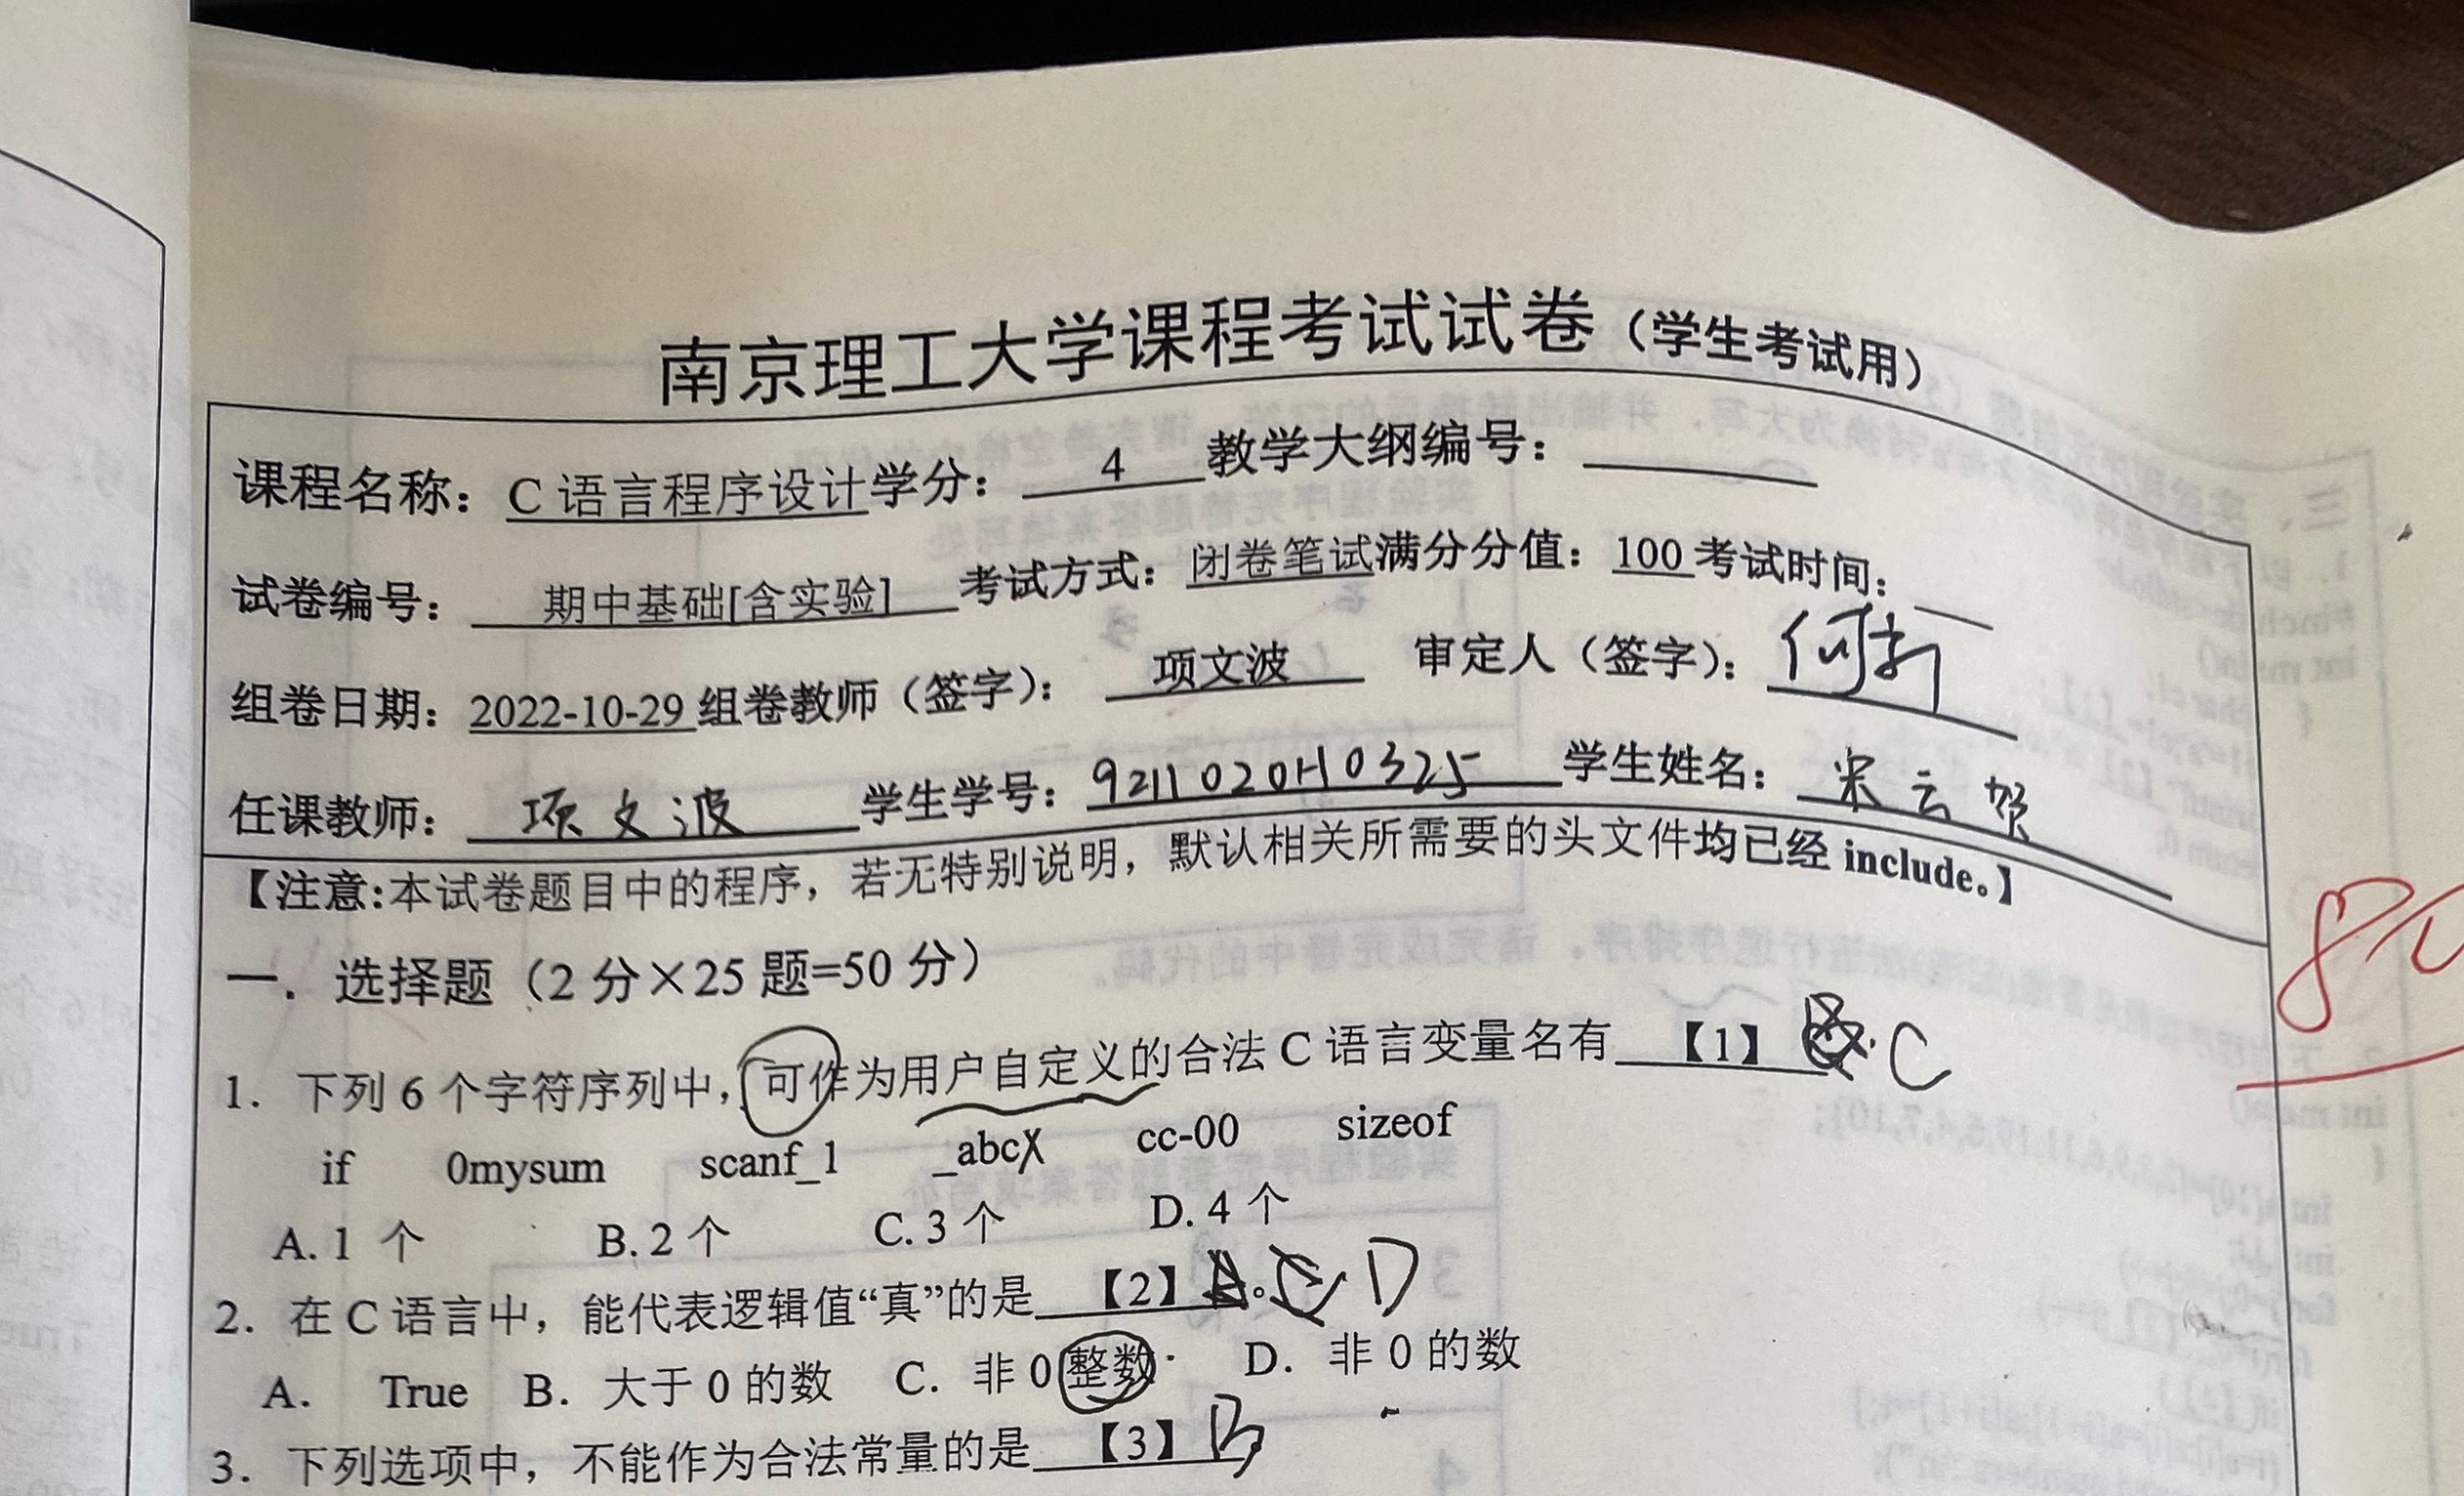 南京理工大学课程考试试卷（学生考试用）
课程名称：C 语言程序设计学分： 4 教学大纲编号：
试卷编号： 期中基础[含实验] 考试方式：闭卷笔试满分分值：100 考试时间：
组卷日期：2022-10-29 组卷教师（签字）： 项文波 审定人（签字）：
任课教师： 项文波 学生学号：9211020H0325 学生姓名：宋云贺
【注意:本试卷题目中的程序，若无特别说明，默认相关所需要的头文件均已经 include。】
一．选择题（2 分×25 题=50 分）
1． 下列 6 个字符序列中，可作为用户自定义的合法 C 语言变量名有 【1】 C
if 0mysum scanf_1 _abc cc-00 sizeof
A. 1 个 B. 2 个 C. 3 个 D. 4 个
2． 在 C 语言中，能代表逻辑值“真”的是 【2】 。 D
A． True B．大于 0 的数 C．非 0 整数 D．非 0 的数
3． 下列选项中，不能作为合法常量的是 【3】 B